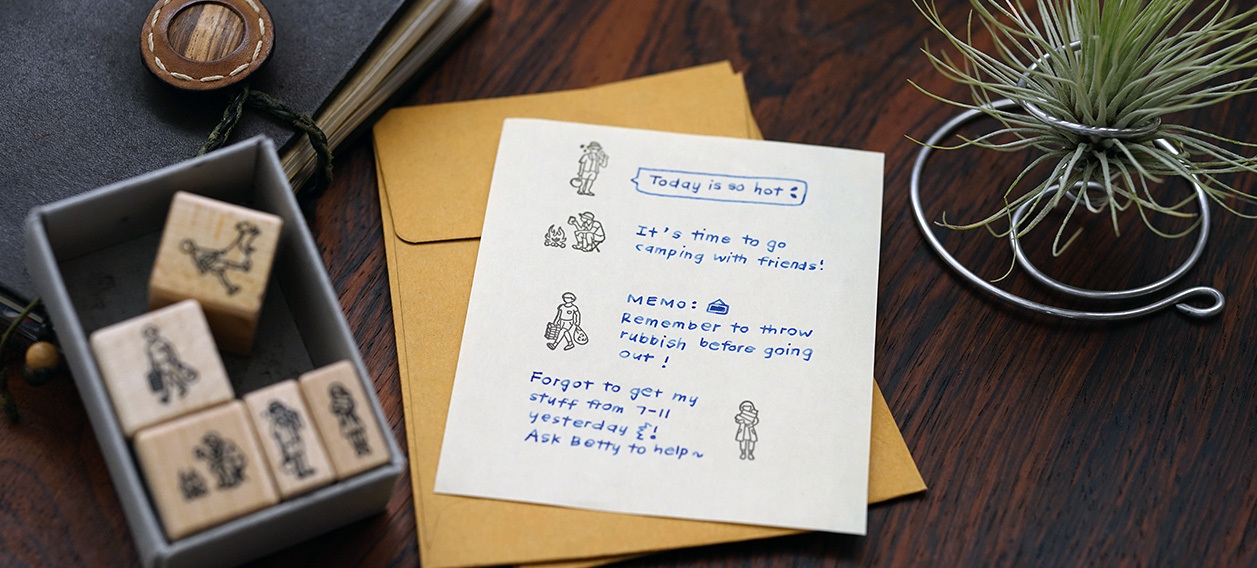 Today is so hot
It's time to go
camping with friends!
MEMO:
Remember to throw
rubbish before going
out!
Forgot to get my
stuff from 7-11
yesterday !
Ask Betty to help~